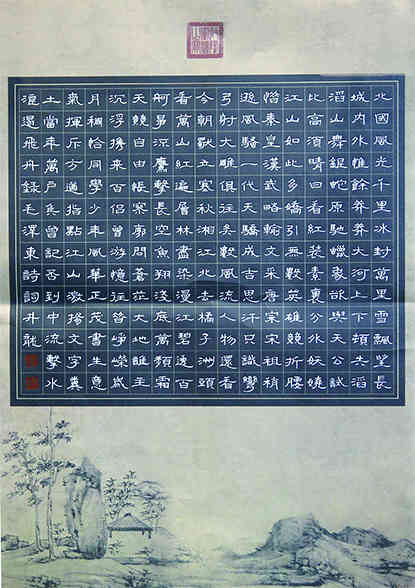 北國風光千里冰封萬里雪飄望長
城内外惟餘莽莽大河上下頓失滔
滔山舞銀蛇原馳蠟象欲與天公試
比高須晴日看紅裝素裹分外妖嬈
江山如此多嬌引無數英雄競折腰
惜秦皇漢武略輸文采唐宗宋祖稍
遜風騷一代天驕成吉思汗只識彎
弓射大雕俱往矣數風流人物還看
今朝獨立寒秋湘江北去橘子洲頭
看萬山紅遍層林盡染漫江碧透百
舸爭流鷹擊長空魚翔淺底萬類霜
天競自由悵寥廓問蒼茫大地誰主
沉浮攜來百侣曾游憶往昔崢嶸歲
月稠恰同學少年風華正茂書生意
氣揮斥方遒指點江山激揚文字糞
土當年萬户侯曾記否到中流擊水
浪遏飛舟錄毛澤東詩詞丹龍